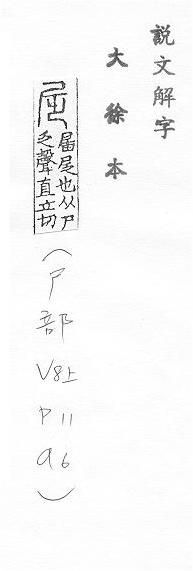 說文解字
大徐本
也从尸
乏聲直立切
（尸部V8上P11a6）